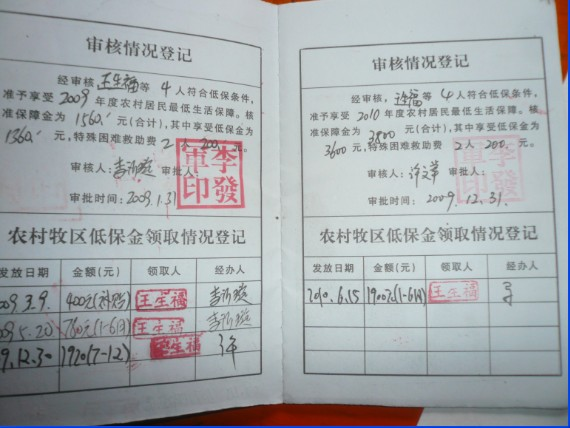 审核情况登记
经审核,王生福等 4 人符合低保条件,
准予享受 2009 年度农村居民最低生活保障。核
准保障金为 1560 元(合计),其中享受低保金为
1360 元,特殊困难救助费 2 人 200 元。
审核人: 审批人:
李發
章印
审批时间: 2009.1.31
农村牧区低保金领取情况登记
发放日期 金额(元) 领取人 经办人
009.3.9. 400元(补贴) 王生福
009.5.20 760元(1-6月) 王生福
9.12.30 1920(7-12) 王生福
审核情况登记
经审核, 等 4 人符合低保条件,
准予享受 2010 年度农村居民最低生活保障。核
准保障金为 3800 元(合计),其中享受低保金为
3600 元,特殊困难救助费 2 人 200 元。
审核人: 审批人:
李發
印
审批时间: 2009.12.31.
农村牧区低保金领取情况登记
发放日期 金额(元) 领取人 经办人
2010.6.15 1900元(1-6月) 王生福